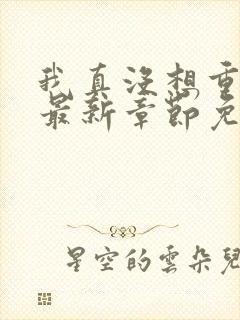 我真没想重
最新章节免
星空的雲朵兒